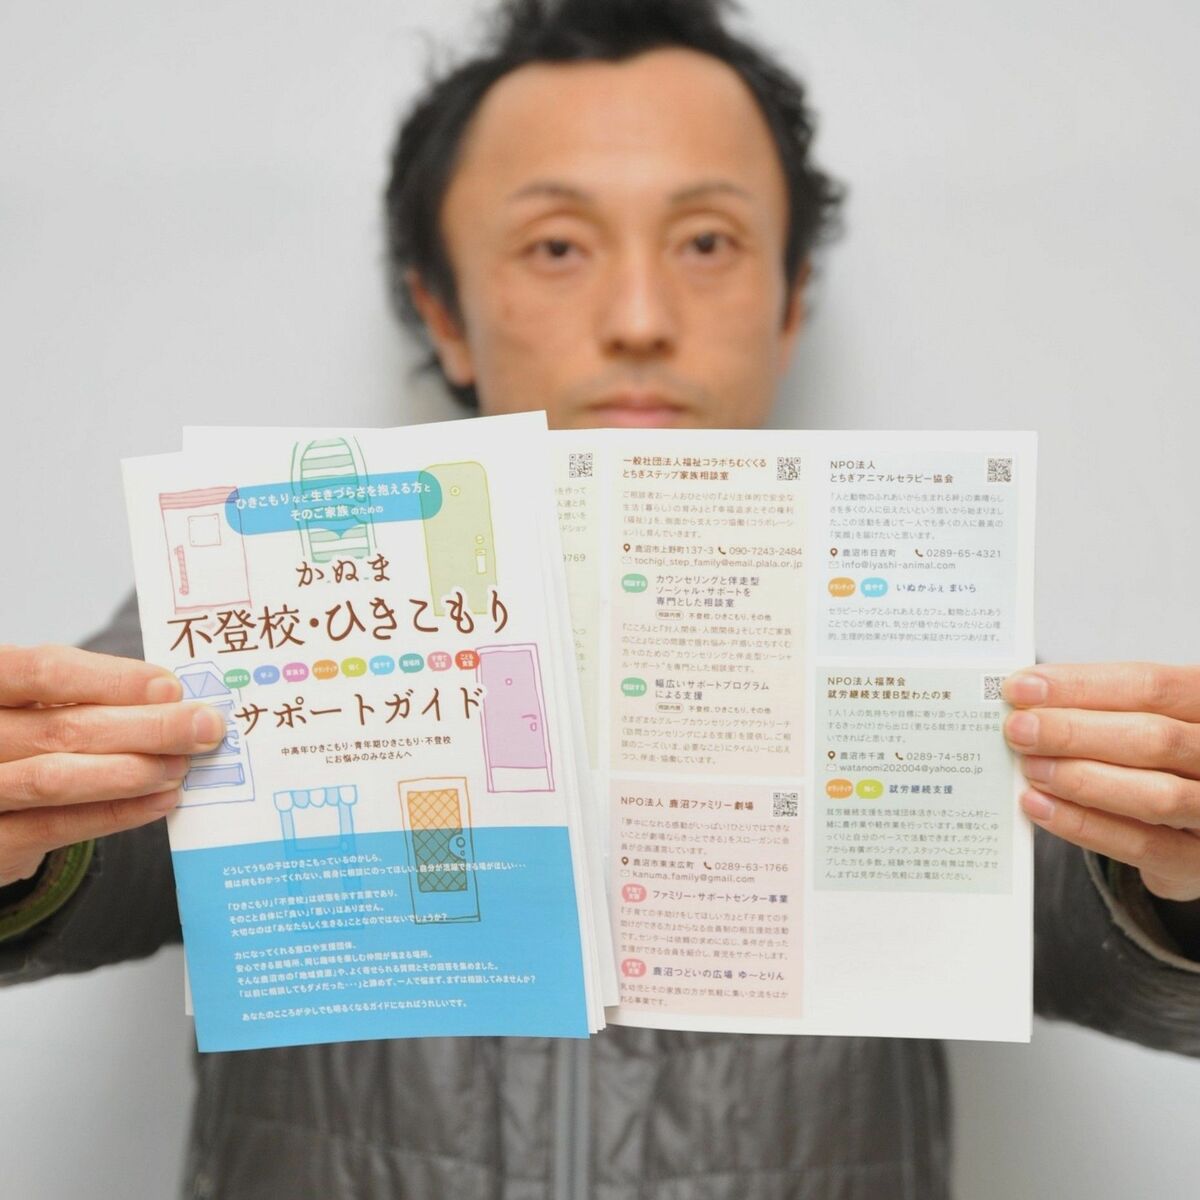 ひきこもりなど生きづらさを抱える方と
そのご家族のための
かぬま
不登校・ひきこもり
相談する
学ぶ
家族会
ボランティア
働く
癒やす
居場所
子育て
支援
こども
食堂
サポートガイド
中高年ひきこもり・青年期ひきこもり・不登校
にお悩みのみなさんへ
どうしてうちの子はひきこもっているのかしら、
親は何もわかってくれない、親身に相談にのってほしい、自分が活躍できる場がほしい・・・
「ひきこもり」「不登校」は状態を示す言葉であり、
そのこと自体に「良い」「悪い」はありません。
大切なのは「あなたらしく生きる」ことなのではないでしょうか?
力になってくれる窓口や支援団体、
安心できる居場所、同じ趣味を楽しむ仲間が集まる場所。
そんな鹿沼市の「地域資源」や、よく寄せられる質問とその回答を集めました。
「以前に相談してもダメだった・・・」と諦めず、一人で悩まず、まずは相談してみませんか?
あなたのこころが少しでも明るくなるガイドになればうれしいです。
一般社団法人福祉コラボちむぐくる
とちぎステップ家族相談室
ご相談者お一人おひとりの『より主体的で安全な
生活(暮らし)の育み』と『幸福追求とその権利
(福祉)』を、側面から支えつつ協働(コラボレーシ
ョン)し育んでいきます。
鹿沼市上野町137-3 090-7243-2484
tochigi_step_family@email.plala.or.jp
相談する
カウンセリングと伴走型
ソーシャル・サポートを
専門とした相談室
相談内容 不登校、ひきこもり、その他
『こころ』と『対人関係・人間関係』そして『ご家族
のこと』などの問題で揺れ悩み・戸惑い立ちすくむ
方々のための"カウンセリングと伴走型ソーシャ
ル・サポート"を専門とした相談室です。
相談する
幅広いサポートプログラム
による支援
相談内容 不登校、ひきこもり、その他
さまざまなグループカウンセリングやアウトリーチ
(訪問カウンセリングによる支援)を提供し、ご相
談のニーズ(いま、必要なこと)にタイムリーに応え
つつ、伴走・協働しています。
NPO法人 鹿沼ファミリー劇場
「夢中になれる感動がいっぱい!ひとりではできな
いことが劇場ならきっとできる」をスローガンに会
員が企画運営しています。
鹿沼市東末広町 0289-63-1766
kanuma.family@gmail.com
子育て
支援
ファミリー・サポートセンター事業
『子育ての手助けをしてほしい方』と『子育ての手
助けができる方』からなる会員制の相互援助活動
です。センターは依頼の求めに応じ、条件が合った
支援ができる会員を紹介し、育児をサポートします。
子育て
支援
鹿沼つどいの広場 ゆ〜とりん
乳幼児とその家族の方が気軽に集い交流をはか
れる事業です。
NPO法人
とちぎアニマルセラピー協会
「人と動物のふれあいから生まれる絆」の素晴らし
さを多くの人に伝えたいという思いから始まりまし
た。この活動を通じて一人でも多くの人に最高の
「笑顔」を届けたいと思います。
鹿沼市日吉町 0289-65-4321
info@iyashi-animal.com
ボランティア
癒やす
いぬかふぇ まいら
セラピードッグとふれあえるカフェ。動物とふれあう
ことで心が癒され、気分が穏やかになったりと心理
的、生理的効果が科学的に実証されつつあります。
NPO法人福聚会
就労継続支援B型わたの実
1人1人の気持ちや目標に寄り添って入口(就労
するきっかけ)から出口(更なる就労)までお手伝
いできればと思います。
鹿沼市千渡 0289-74-5871
watanomi202004@yahoo.co.jp
ボランティア
働く
就労継続支援
就労継続支援を地域団体活きいきこっとん村と一
緒に農作業や軽作業を行っています。無理なく、ゆ
っくりと自分のペースで活動できます。ボランティ
アから有償ボランティア、スタッフへとステップアッ
プした方も多数。経験や障害の有無は問いませ
ん。まずは見学から気軽にお電話ください。